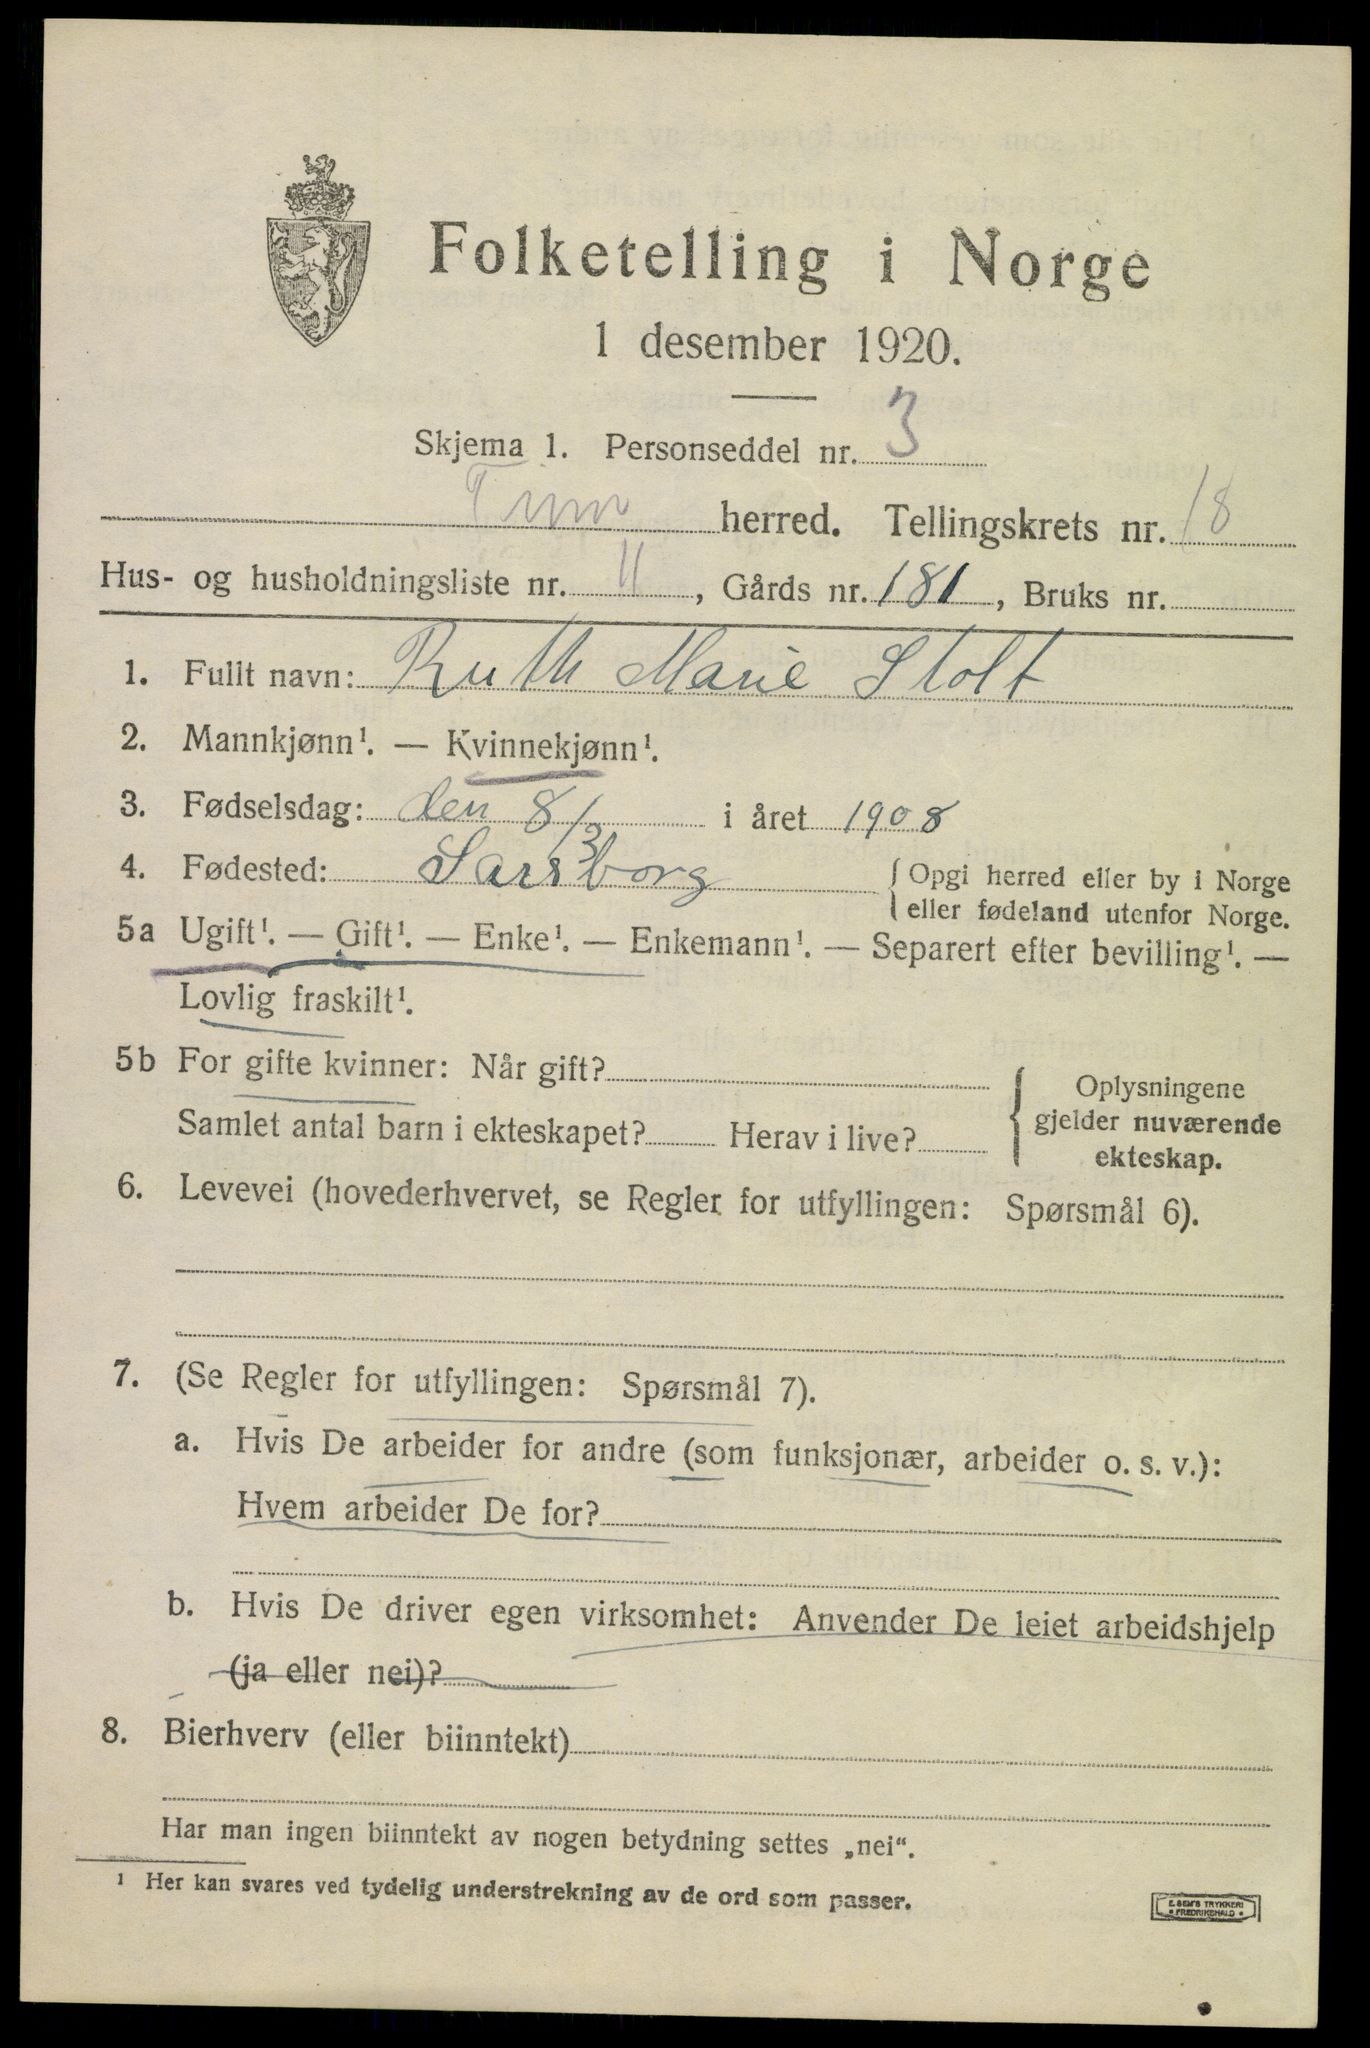 Folketelling i Norge
1 desember 1920.
Skjema 1. Personseddel nr. 3
herred. Tellingskrets nr. 18
Hus- og husholdningsliste nr. 11, Gårds nr. 181, Bruks nr.
1. Fullt navn: Ruth Marie Stolt
2. Mannkjønn¹. — Kvinnekjønn¹.
3. Fødselsdag: den 8/3 i året 1908
4. Fødested: Sarsborg { Opgi herred eller by i Norge
eller fødeland utenfor Norge.
5a Ugift¹. — Gift¹. — Enke¹. — Enkemann¹. — Separert efter bevilling¹. —
Lovlig fraskilt¹.
5b For gifte kvinner: Når gift?
Samlet antal barn i ekteskapet? Herav i live?
Oplysningene
gjelder nuværende
ekteskap.
6. Levevei (hovederhvervet, se Regler for utfyllingen: Spørsmål 6).
7. (Se Regler for utfyllingen: Spørsmål 7).
a. Hvis De arbeider for andre (som funksjonær, arbeider o. s. v.):
Hvem arbeider De for?
b. Hvis De driver egen virksomhet: Anvender De leiet arbeidshjelp
(ja eller nei)?
8. Bierhverv (eller biinntekt)
Har man ingen biinntekt av nogen betydning settes „nei“.
¹ Her kan svares ved tydelig understrekning av de ord som passer.
E. SEM'S TRYKKERI
• FREDRIKSHALD •